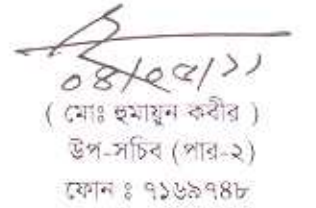 ০৪/০৫/১১
( মোঃ হুমায়ুন কবীর )
উপ-সচিব (পার-২)
ফোন ঃ ৭১৬৯৭৪৮